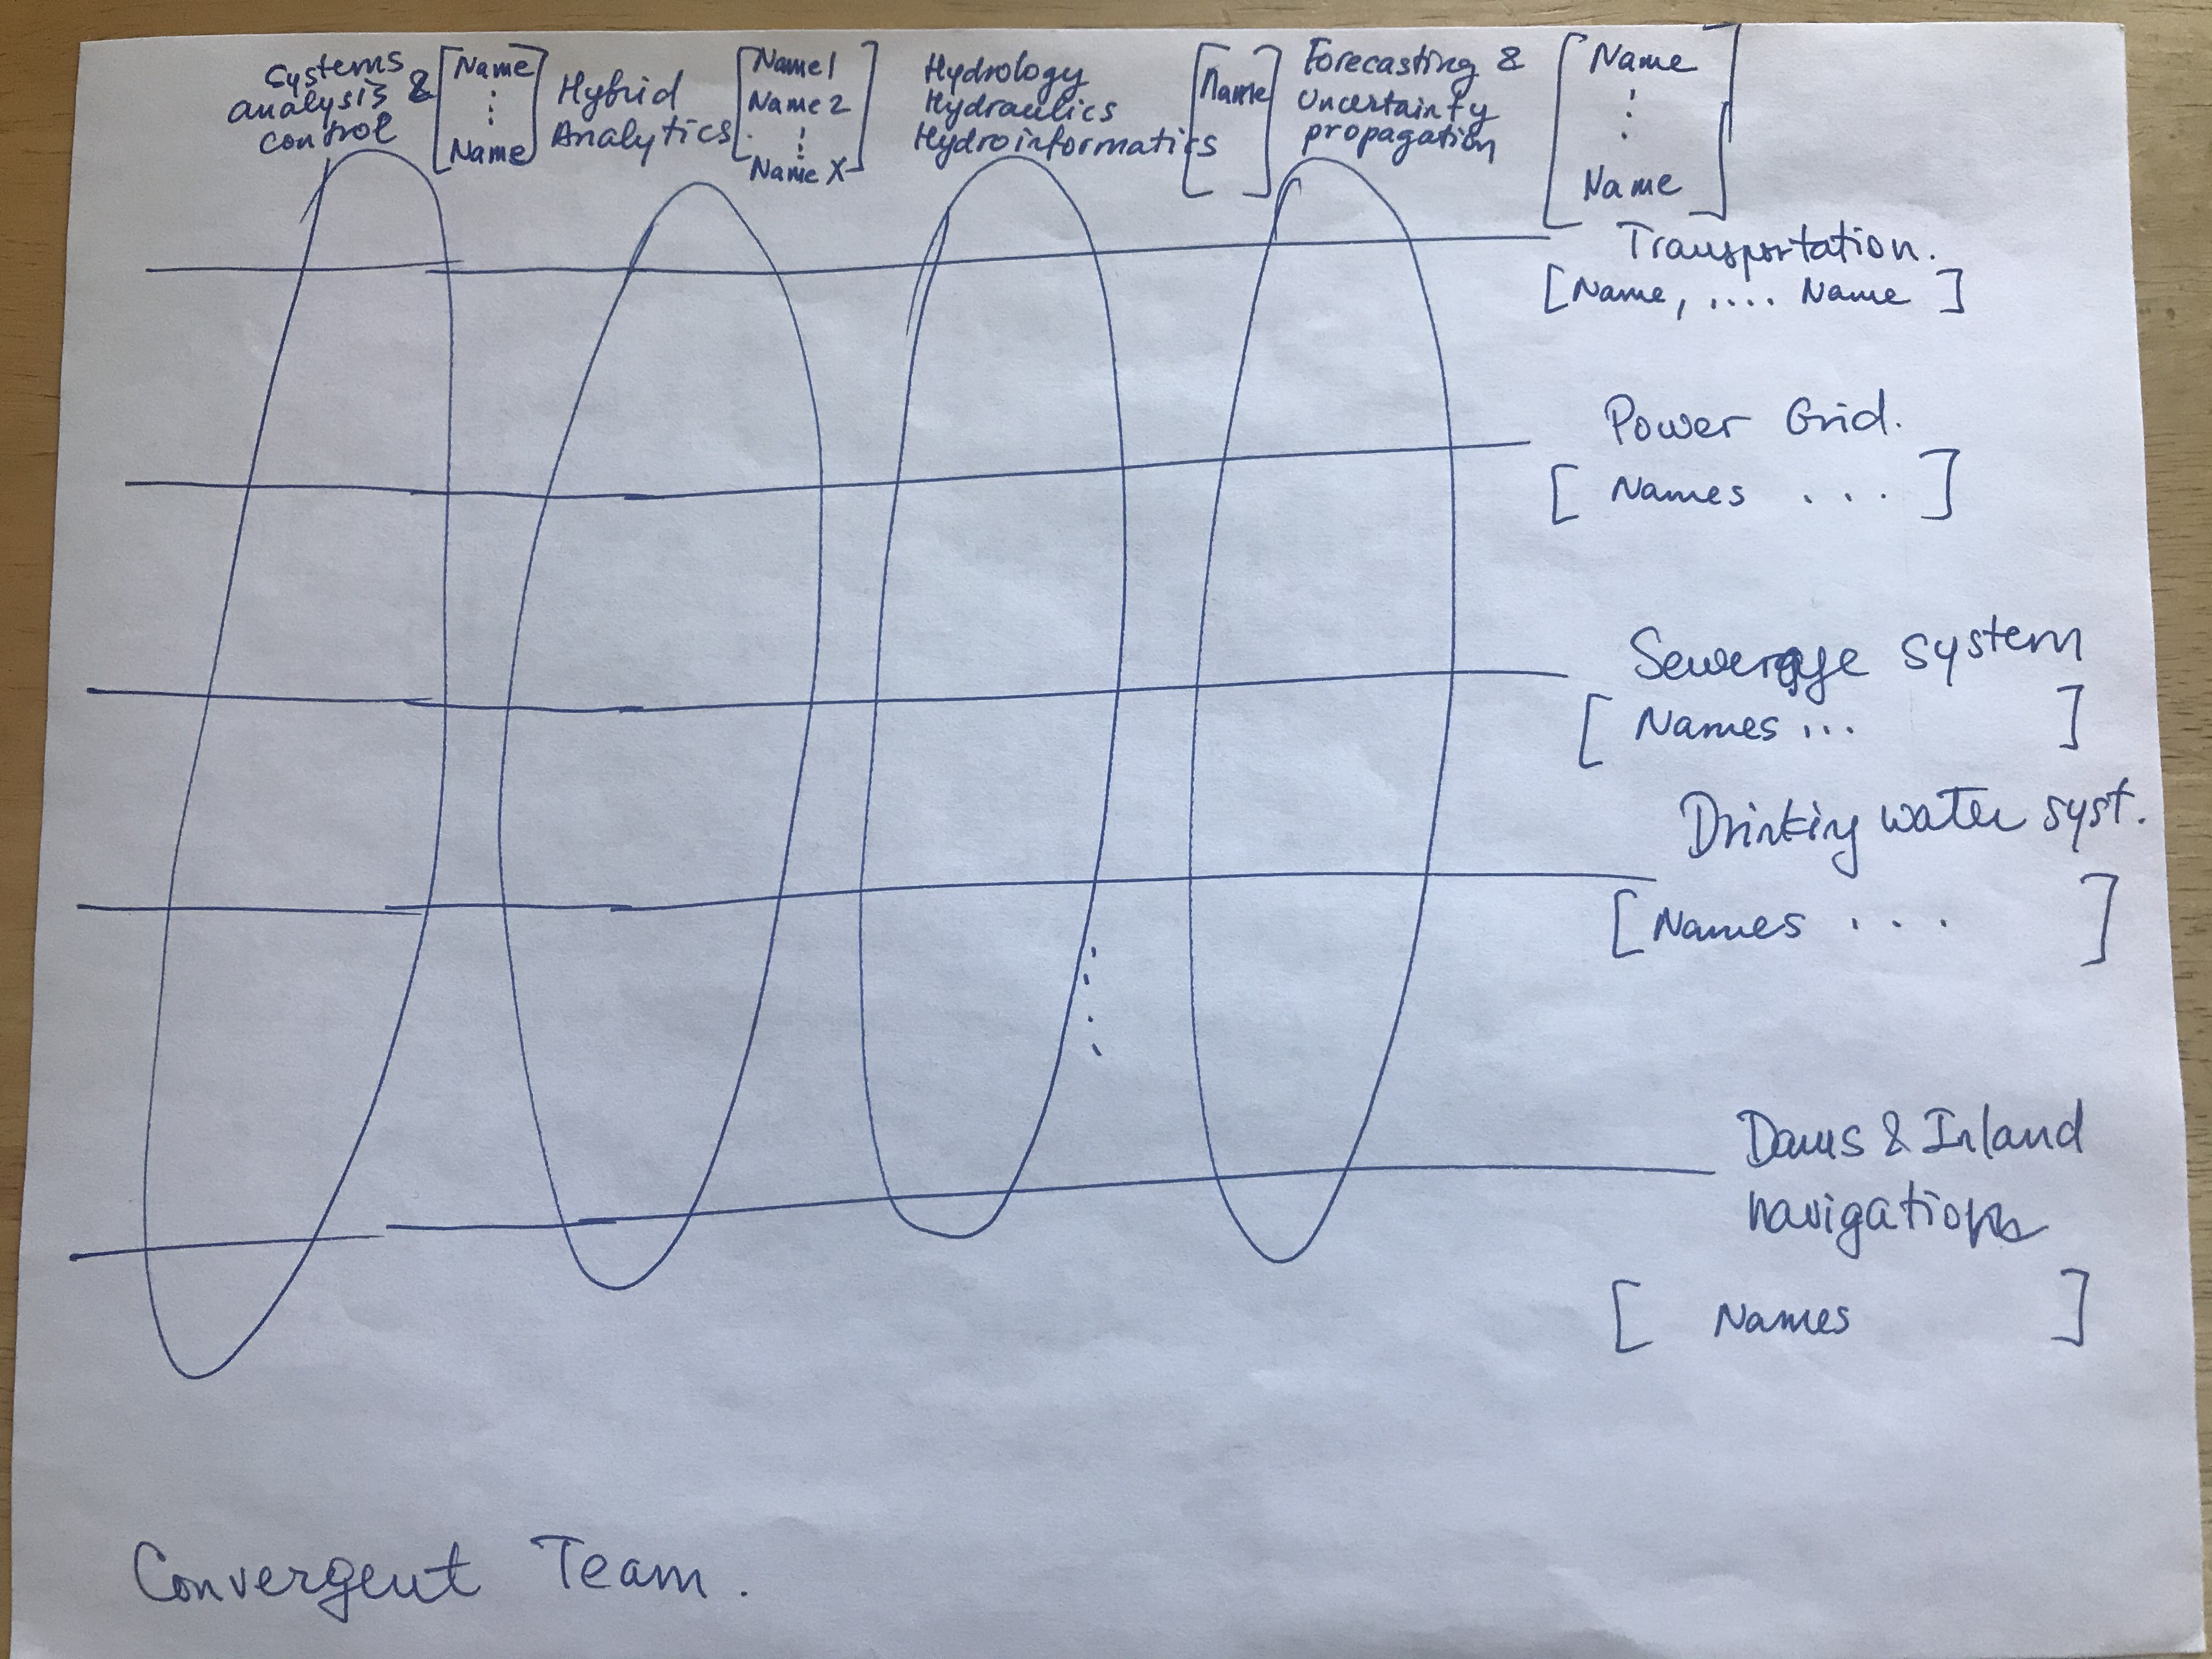 Systems
analysis &
control
[Name
⋮
Name]
Hybrid
Analytics.
[Name1
Name2
⋮
Name X]
Hydrology
Hydraulics
Hydroinformatics
[Name]
Forecasting &
Uncertainty
propagation
[Name
⋮
Name]
Transportation.
[Name, .... Name]
Power Grid.
[Names ...]
Sewerage system
[Names ...]
Drinking water syst.
[Names ...]
Dams & Inland
navigations
[Names]
Convergent Team.